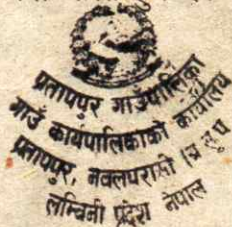 प्रतापपुर गाउँपालिका
गाउँ कार्यपालिकाको कार्यालय
प्रतापपुर, नवलपरासी
लुम्बिनी प्रदेश नेपाल